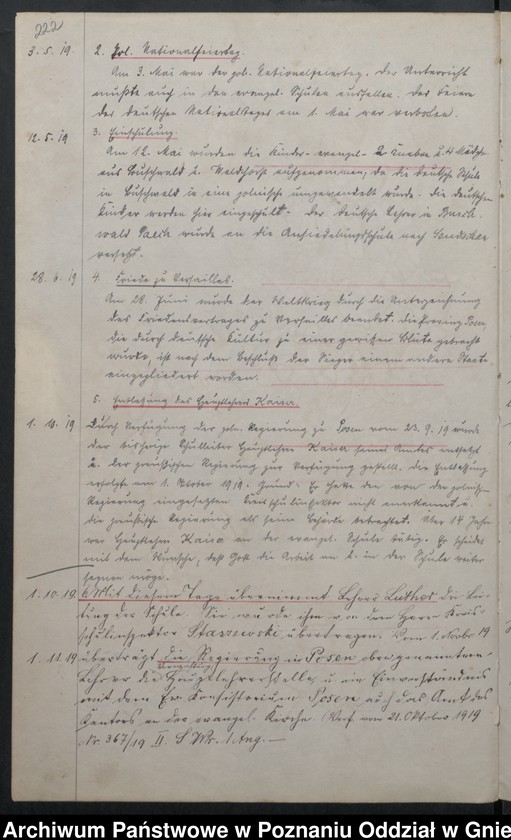 222
3. 5. 19. 2. Pol. Nationalfeiertag.
Am 3. Mai war der pol. Nationalfeiertag. Der Unterricht
mußte auch in den evangel. Schulen ausfallen. Die Feier
des deutschen Nationaltages am 1. Mai war verboten.
12. 5. 19 3. Einschulung.
Am 12. Mai wurden die Kinder evangel. 2 Knaben u. 4 Mädch.
aus Buschwald u. Waldhorst aufgenommen, da die deutsche Schule
in Buschwald in eine polnische umgewandelt wurde. Die deutschen
Kinder werden hier eingeschult. Der deutsche Lehrer in Busch-
wald wurde an die Ansiedlungsschule nach
versetzt.
28. 6. 19 4. Friede zu Versailles.
Am 28. Juni wurde der Weltkrieg durch die Unterzeichnung
des Friedensvertrages zu Versailles beendet. Die Provinz Posen,
die durch deutsche Kultur zu einer gewissen Blüte gebracht
wurde, ist nach dem Beschluß der Sieger einem andern Staate
eingegliedert worden.
5. Entlassung des Hauptlehrers Kania.
1. 10. 19 Durch Verfügung der poln. Regierung zu Posen vom 23. 9. 19 wurde
der bisherige Schulleiter Hauptlehrer Kania seines Amtes entsetzt
u. der preußischen Regierung zur Verfügung gestellt. Die Entlassung
erfolgte am 1. Oktober 1919. Grund: Er hatte den von der polnisch.
Regierung eingesetzten Kreisschulinspektor nicht anerkannt u.
die preußische Regierung als seine Behörde betrachtet. Über 14 Jahre
war Hauptlehrer Kania an der evangel. Schule tätig. Er scheidet
mit dem Wunsche, daß Gott die Arbeit an u. in der Schule weiter
segnen möge.
1. 10. 19. 6. Mit diesem Tage übernimmt Lehrer Luther die Lei-
tung der Schule. Sie wurde ihm von dem Herrn Kreis-
schulinspektor Staszewski übertragen. Vom 1. Novbr 19
1. 11. 19 überträgt die Regierung in Posen obengenanntem
Lehrer die Hauptlehrerstelle u. im Einverständnis
mit dem Ev. Konsistorium Posen auch das Amt des
Kantors an der evangel. Kirche (Verf. vom 21. Oktober 1919
Nr. 367/19 II.
Archiwum Państwowe w Poznaniu Oddział w Gnie